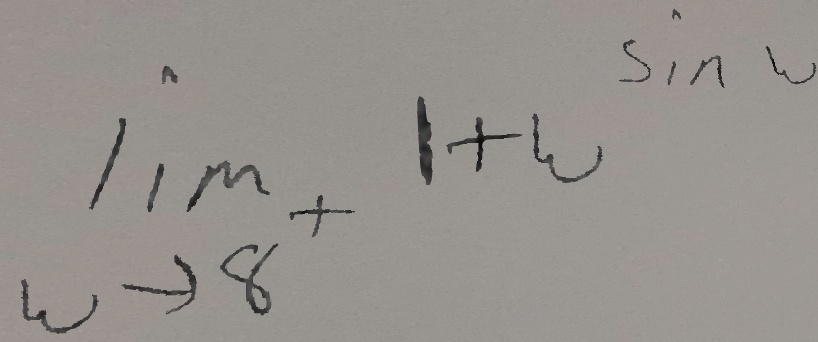 lim w→8⁺ 1+w^sin w